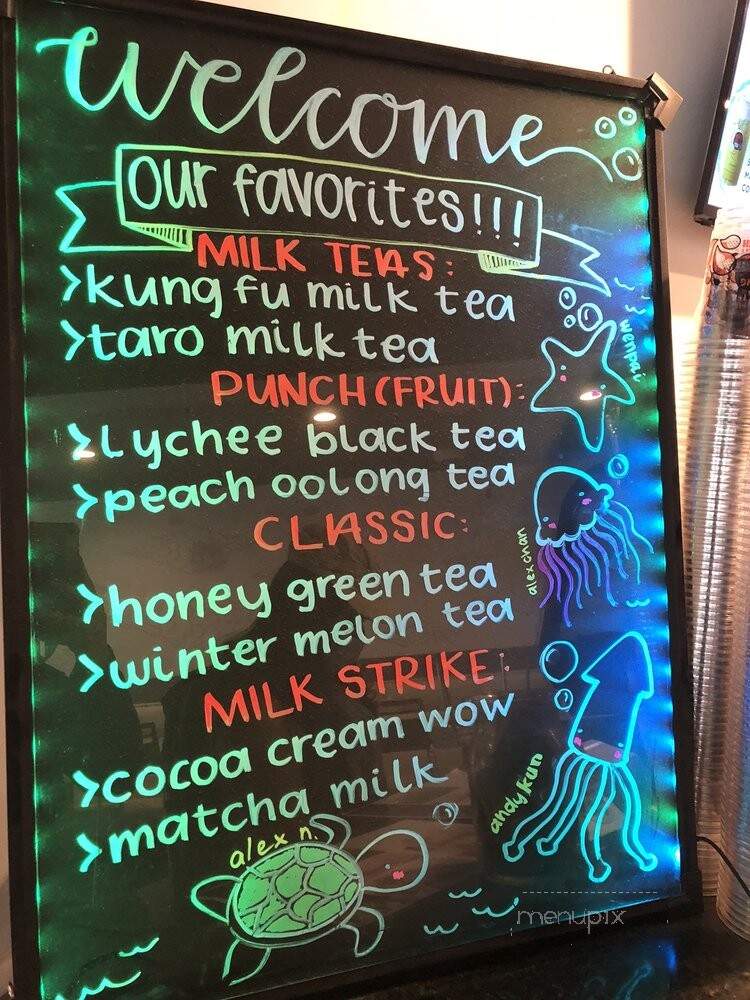 welcome
our favorites!!!
MILK TEAS:
>kung fu milk tea
>taro milk tea
wenpai
PUNCH (FRUIT):
>Lychee black tea
>peach oolong tea
CLASSIC:
alex chan
>honey green tea
>winter melon tea
MILK STRIKE:
>cocoa cream wow
>matcha milk
andykun
alex n.
menupix